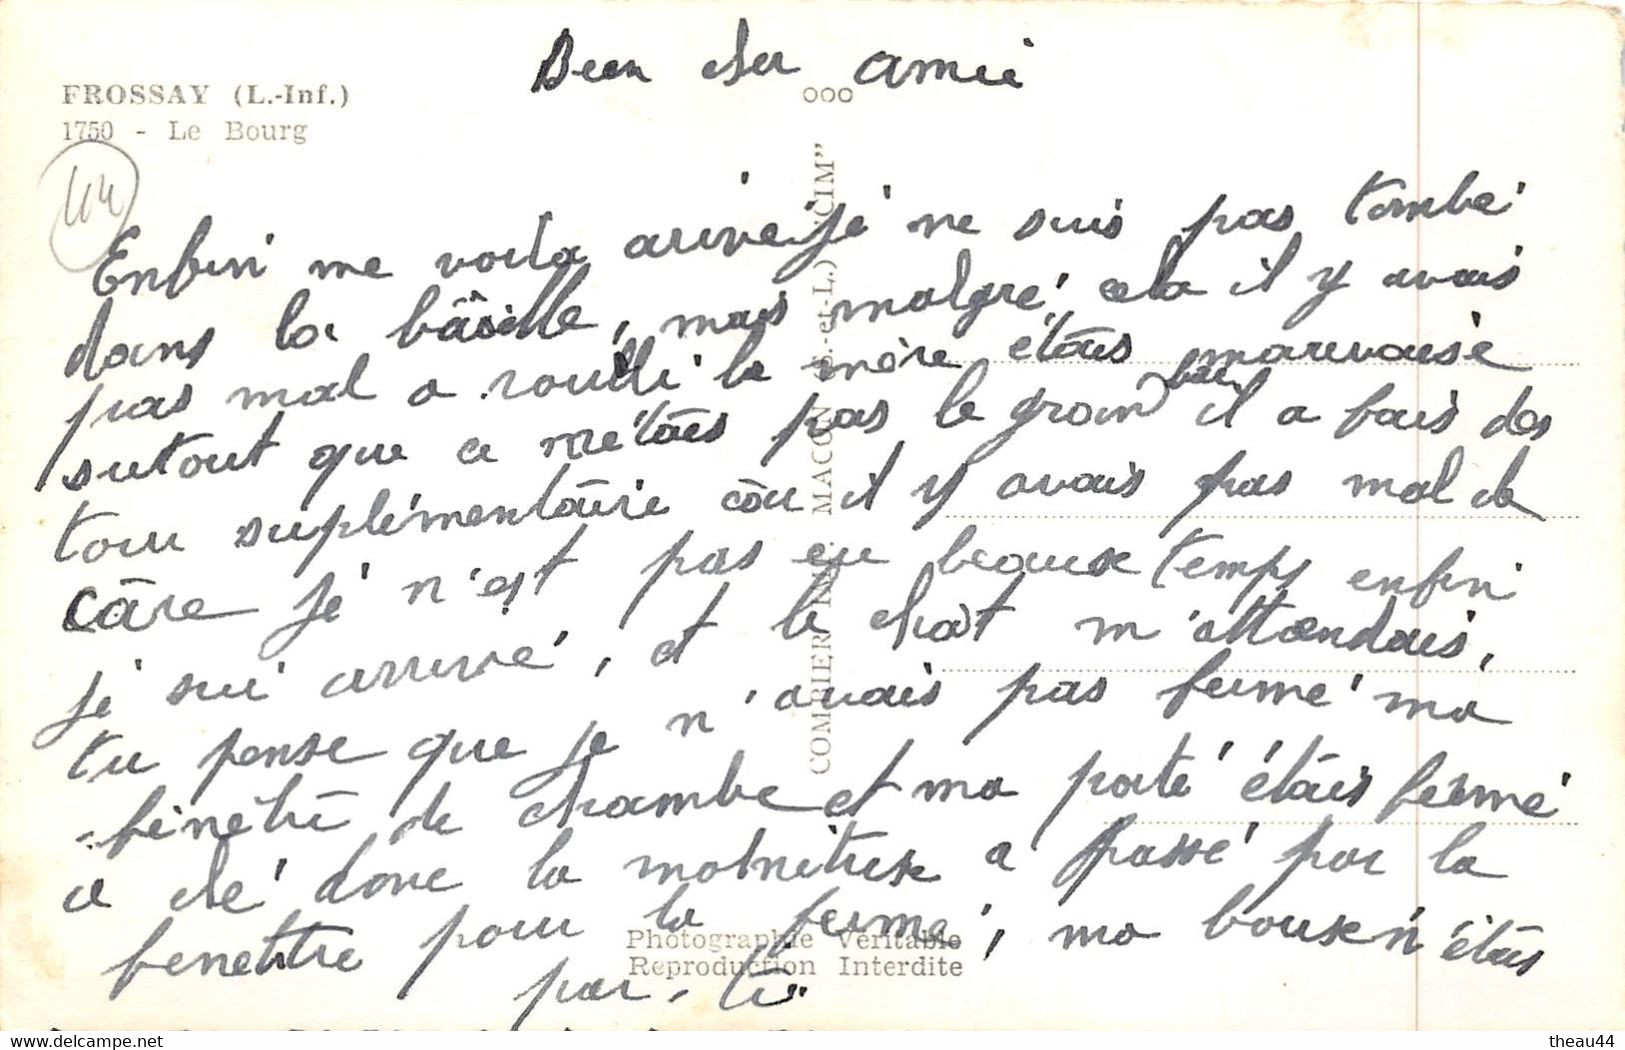 Bien cher amie
FROSSAY (L.-Inf.)
1750 - Le Bourg
ooo
44
COMBIER IMP. MACON (S.-et-L.) "CIM"
Enfin me voila arivé je ne suis pas tombé
dans la bâsille, mais malgré cela il y avais
pas mal a roulli la mère étais mauvaise
sutout que ce métais pas le groin bien il a fais des
tour suplémentaire càu il y avais pas mal de
câre je n'est pas eu beaux temps enfin
je sui arrivé, et le chat m'attendais,
tu pense que je n'avais pas fermé ma
fenêtre de chambe et ma porte étais fermé
a clé donc la maitress a passé par la
fenettre pour la fermé, ma boux n'étais
par. là.
Photographie Véritable
Reproduction Interdite
https://www.delcampe.net
theau44